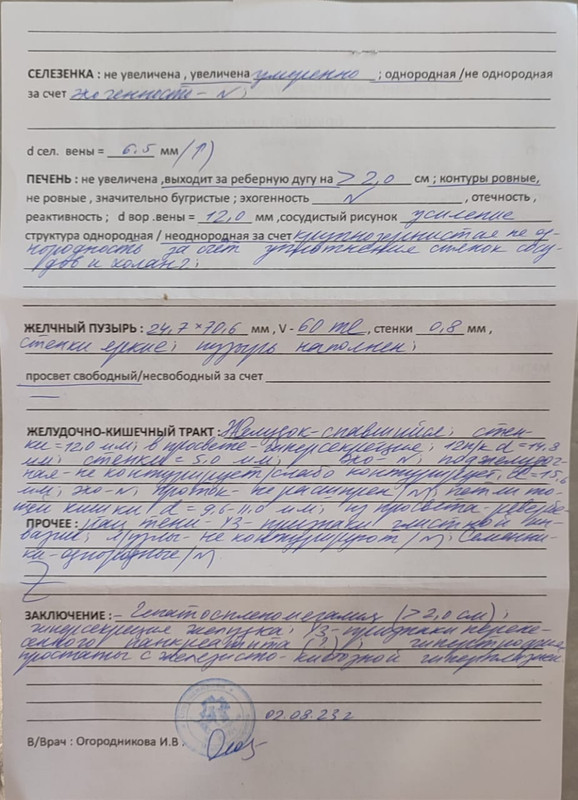 СЕЛЕЗЕНКА : не увеличена , увеличена умеренно ; однородная /не однородная
за счет эхогенность - N ;
d сел. вены = 6.5 мм (↑)
ПЕЧЕНЬ : не увеличена ,выходит за реберную дугу на > 2,0 см ; контуры ровные,
не ровные , значительно бугристые ; эхогенность N , отечность ,
реактивность ; d вор .вены = 12,0 мм ,сосудистый рисунок усиление
структура однородная / неоднородная за счет крупнозернистая не од-
нородность за счет уплотнения стенок сосу-
дов и холанг ;
ЖЕЛЧНЫЙ ПУЗЫРЬ : 24,7 * 70,6 мм , V - 60 ml , стенки 0,8 мм ,
стенки яркие ; пузырь наполнен ;
просвет свободный/несвободный за счет
—
ЖЕЛУДОЧНО-КИШЕЧНЫЙ ТРАКТ : Желудок - спавшийся ; стен-
ки = 12.0 мм ; в просвете - гиперсекреция ; 12п/к d = 14.3
мм ; стенки = 5.0 мм ; поджелудоч-
ная - не контурирует / слабо контурирует, d = 15,6
мм ; эхо - N ; проток - не расширен / N ; петли то-
щей кишки d = 9.6-11.0 мм ; из просвета - ревербе-
ПРОЧЕЕ : рац тени - УЗ - признаки глистной ин-
вазии ; л/узлы - не контурируют / N ; Семенни-
ки - однородные / N
ЗАКЛЮЧЕНИЕ : - Гепатоспленомегалия (> 2,0 см) ;
гиперсекреция желудка ; УЗ - признаки перене-
сенного панкреатита (?) ; гиперстродия
простаты с железисто - кистозной гиперплазией
02.08.23 г
В/Врач : Огородникова И.В .